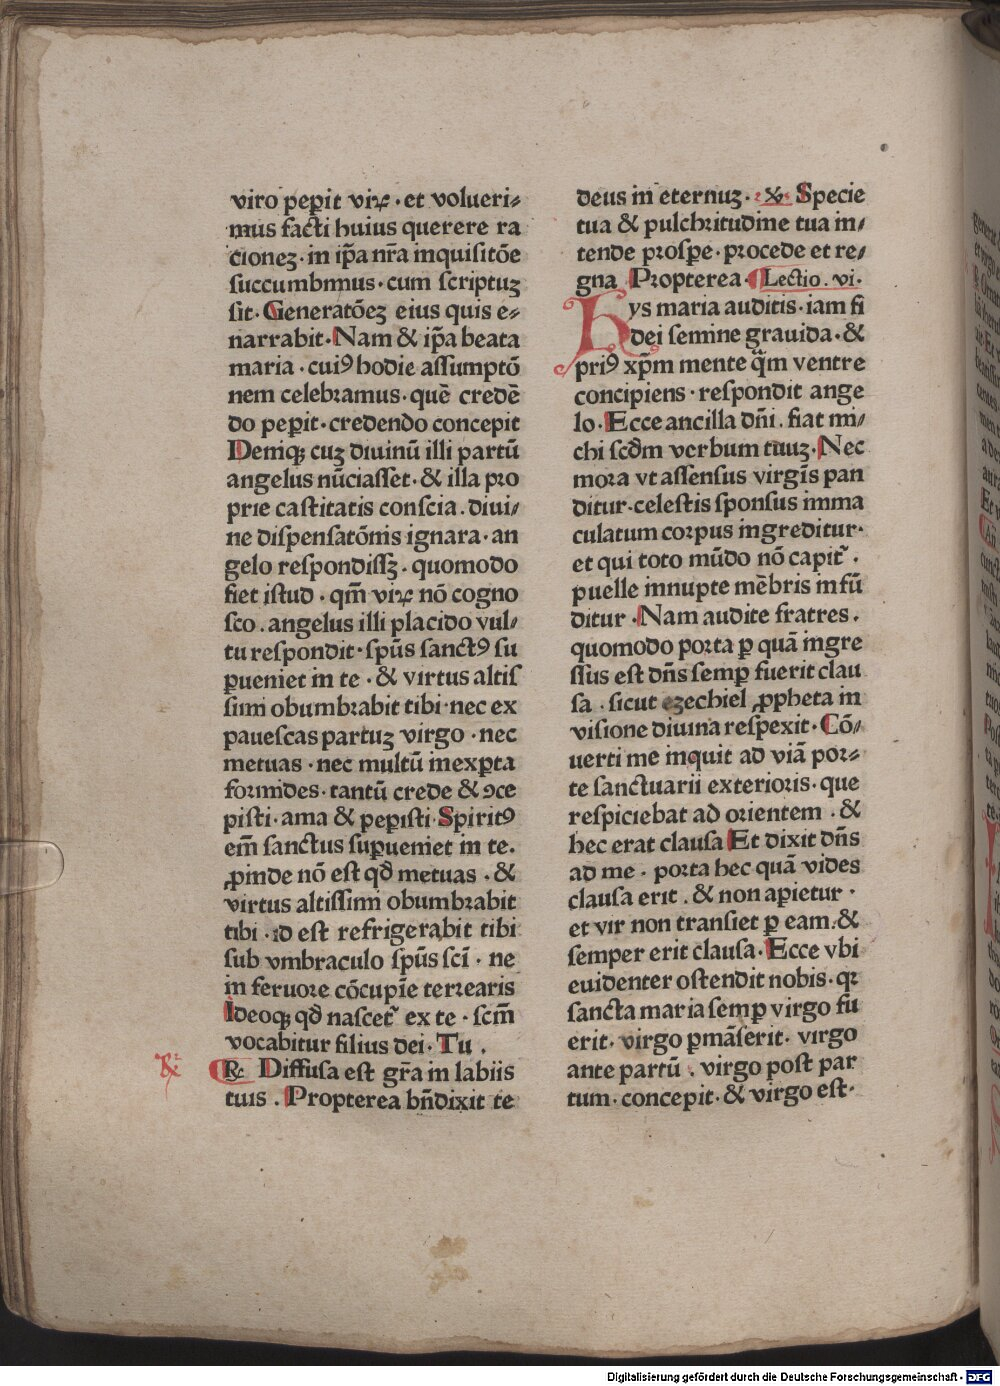 viro peꝑit viꝝ · et volueri⸗
mus facti huius querere ra
cionez · in ip̃a nr̃a inquisitõe
succumbimus · cum scriptuʒ
sit · Generatõeʒ eius quis e⸗
narrabit · Nam & ip̃a beata
maria · cuiꝰ hodie assumptõ
nem celebramus · quẽ credẽ
do peꝑit · credendo concepit
Deniqꝫ cuʒ diuinũ illi partũ
angelus nũciasset · & illa pro
prie castitatis conscia . diui⸗
ne dispensatõnis ignara · an
gelo respondissꝫ · quomodo
fiet istud · qm̃ viꝝ nõ cogno
sco . angelus illi placido vul⸗
tu respondit · sp̃us sanctꝰ su
ꝑueniet in te · & virtus altis
simi obumbrabit tibi · nec ex
pauescas partuʒ virgo · nec
metuas · nec multũ inexꝑta
formides · tantũ crede & ꝯce
pisti · ama & peꝑisti · Spiritꝰ
em̃ sanctus suꝑueniet in te .
ꝓinde nõ est qđ metuas · &
virtus altissimi obumbrabit
tibi · id est refrigerabit tibi
sub vmbraculo sp̃us scĩ · ne
in feruore cõcupĩe terrearis
Ideoqꝫ qđ nascet᷑ ex te · scm̃
vocabitur filius dei · Tu .
℞ Diffusa est gr̃a in labiis
tuis . Propterea bñdixit te
deus in eternuʒ · ℣ · Specie
tua & pulchritudine tua in⸗
tende prosꝑe · procede et re⸗
gna Propterea · Lectio . vi ·
Hys maria auditis · iam fi
dei semine grauida · &
priꝰ xp̃m mente q̃m ventre
concipiens · respondit ange
lo · Ecce ancilla dñi . fiat mi⸗
chi scđm verbum tuuʒ · Nec
mora vt assensus virgĩs pan
ditur · celestis sponsus imma
culatum corpus ingreditur ·
et qui toto mũdo nõ capit᷑ .
puelle innupte mẽbris infũ
ditur · Nam audite fratres .
quomodo porta ꝑ quã ingre
ssus est dñs semꝑ fuerit clau
sa · sicut ezechiel ꝓpheta in
visione diuina respexit · Cõ⸗
uerti me inquit ad viã por⸗
te sanctuarii exterioris · que
respiciebat ad orientem · &
hec erat clausa Et dixit dñs
ad me · porta hec quã vides
clausa erit . & non aꝑietur ·
et vir non transiet ꝑ eam · &
semper erit clausa · Ecce vbi
euidenter ostendit nobis · qꝛ
sancta maria semꝑ virgo fu
erit · virgo ꝑmãserit · virgo
ante partũ . virgo post par
tum · concepit · & virgo est ·
℞
Digitalisierung gefördert durch die Deutsche Forschungsgemeinschaft · DFG